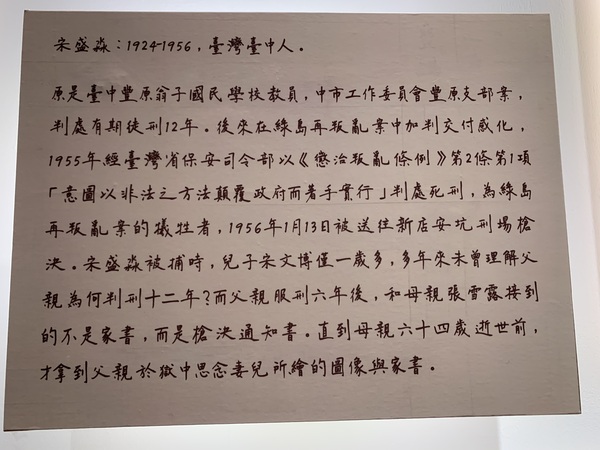 宋盛淼：1924-1956，臺灣臺中人。
原是臺中豐原翁子國民學校教員，中市工作委員會豐原支部案，
判處有期徒刑12年。後來在綠島再叛亂案中加判交付感化，
1955年經臺灣省保安司令部以《懲治叛亂條例》第2條第1項
「意圖以非法之方法顛覆政府而著手實行」判處死刑，為綠島
再叛亂案的犧牲者，1956年1月13日被送往新店安坑刑場槍
決。宋盛淼被捕時，兒子宋文博僅一歲多，多年來未曾理解父
親為何判刑十二年？而父親服刑六年後，和母親張雪露接到
的不是家書，而是槍決通知書。直到母親六十四歲逝世前，
才拿到父親於獄中思念妻兒所繪的圖像與家書。